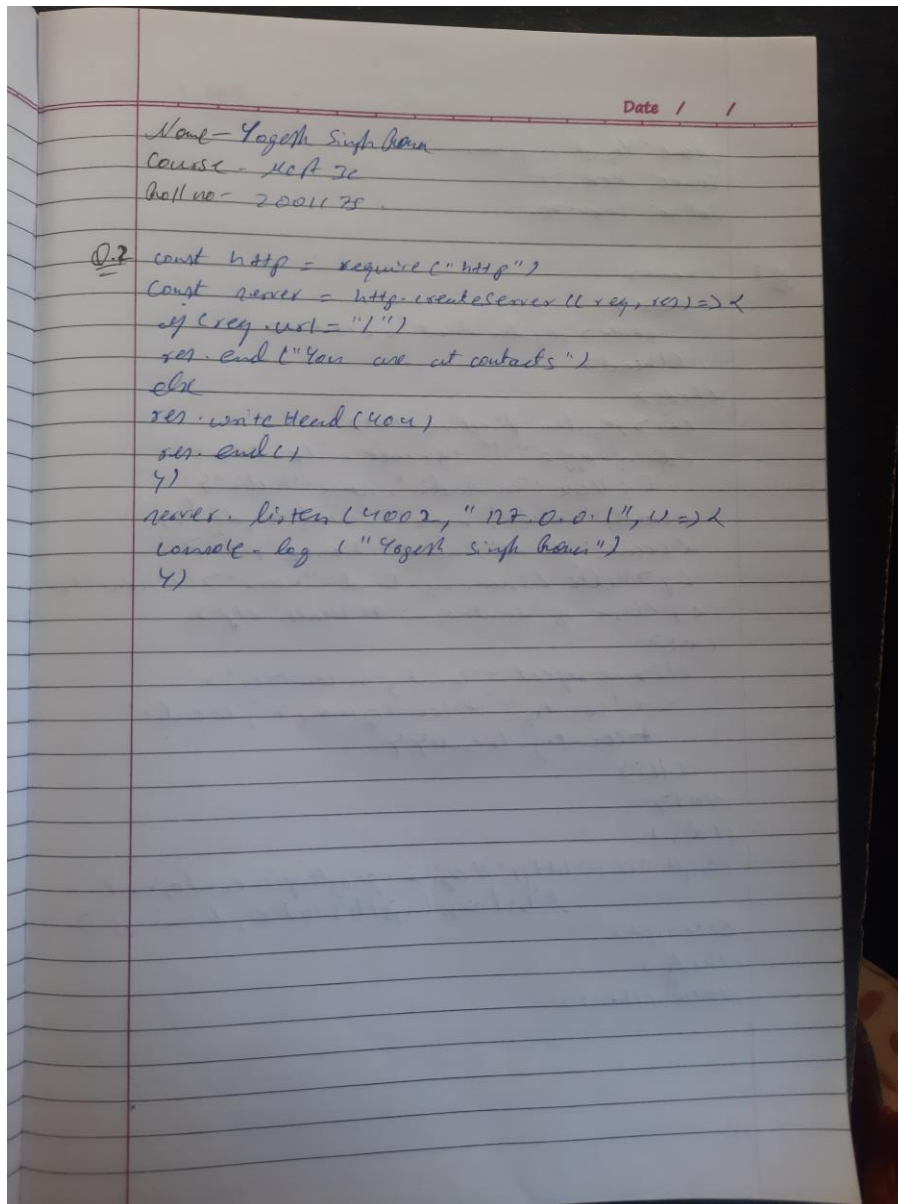 Date / /
Name - Yogesh Singh
Course - MCA 3C
Roll no - 2001175.
Q.2 const http = require("http")
const server = http.createServer((req, res) => {
if (req.url = "/")
res.end("You are at contacts")
else
res.writeHead(404)
res.end()
})
server.listen(4002, "127.0.0.1", () => {
console.log("Yogesh Singh")
})